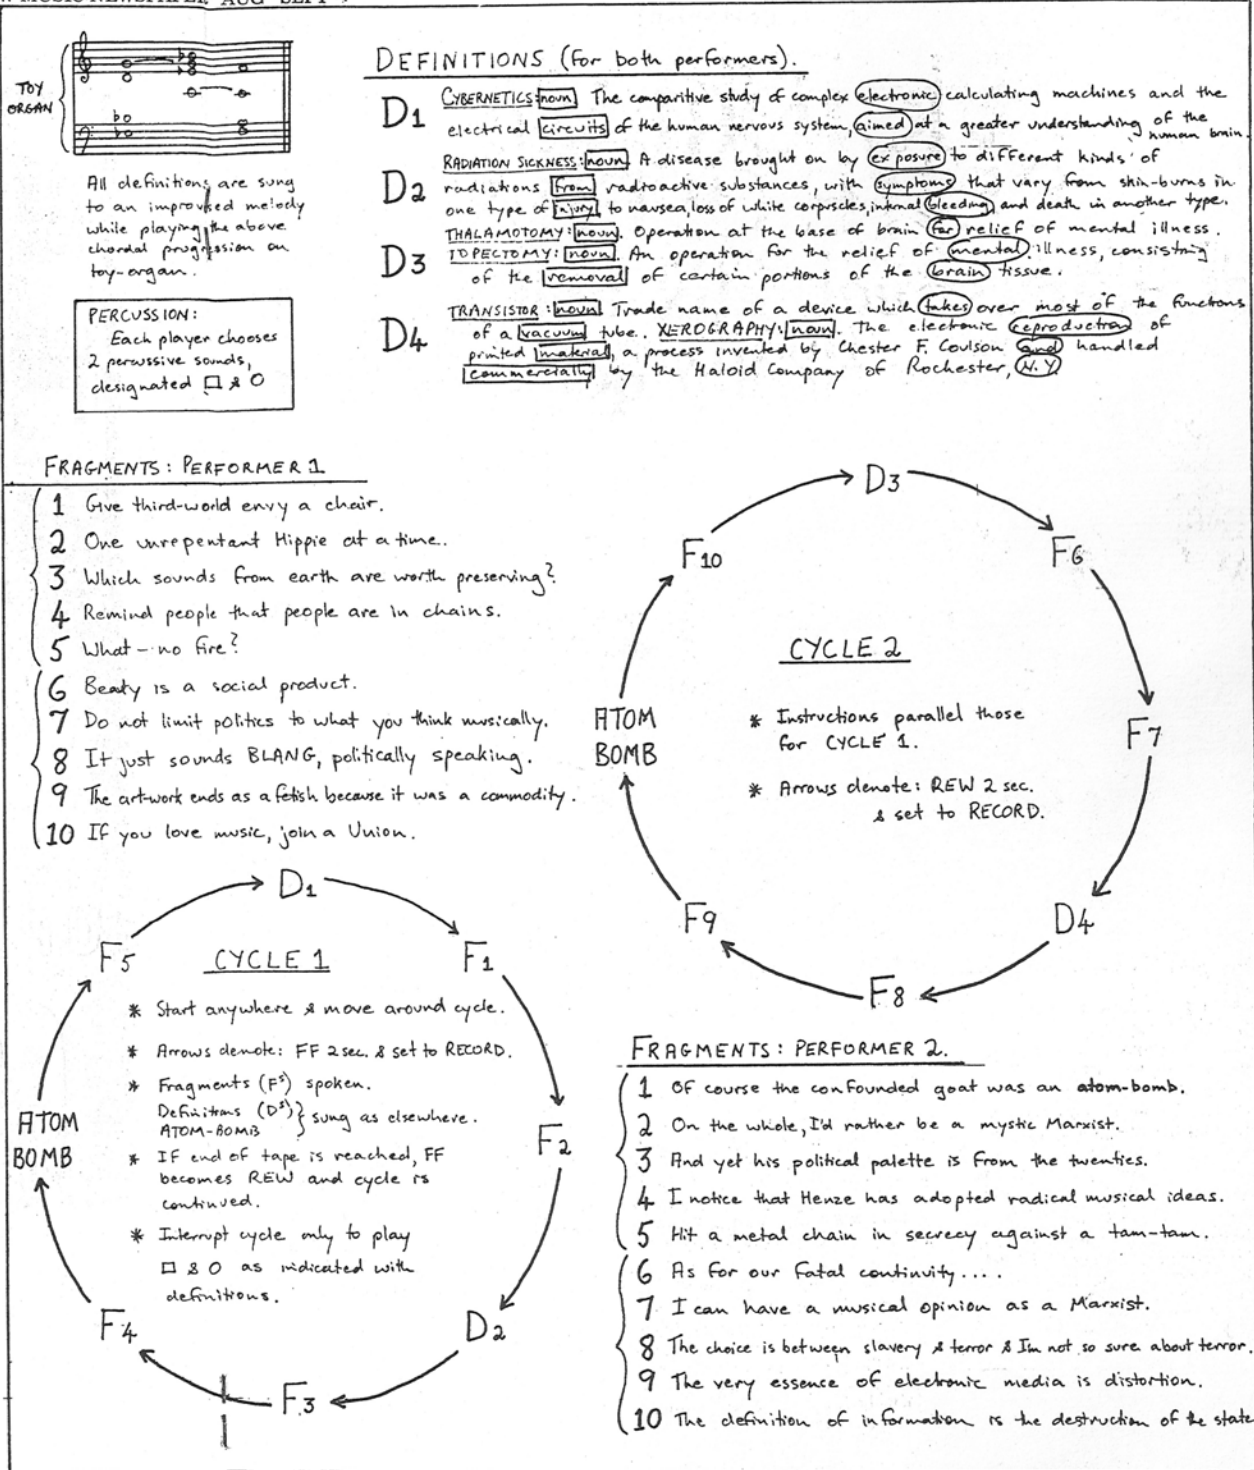 MUSIC NEWSPAPER AUG SEPT
TOY
ORGAN
All definitions are sung
to an improvised melody
while playing the above
chordal progression on
toy-organ.
PERCUSSION:
Each player chooses
2 percussive sounds,
designated □ & O
DEFINITIONS (for both performers).
D1 CYBERNETICS: noun The comparitive study of complex electronic calculating machines and the
electrical circuits of the human nervous system, aimed at a greater understanding of the
human brain.
D2 RADIATION SICKNESS: noun A disease brought on by exposure to different kinds of
radiations from radioactive substances, with symptoms that vary from skin-burns in
one type of injury to nausea, loss of white corpuscles, internal bleeding and death in another type.
D3 THALAMOTOMY: noun. Operation at the base of brain for relief of mental illness.
TOPECTOMY: noun. An operation for the relief of mental illness, consisting
of the removal of certain portions of the brain tissue.
D4 TRANSISTOR: noun Trade name of a device which takes over most of the functions
of a vacuum tube. XEROGRAPHY: noun. The electronic reproduction of
printed material, a process invented by Chester F. Coulson and handled
commercially by the Haloid Company of Rochester, N.Y.
FRAGMENTS: PERFORMER 1
1 Give third-world envy a chair.
2 One unrepentant Hippie at a time.
3 Which sounds from earth are worth preserving?
4 Remind people that people are in chains.
5 What - no fire?
6 Beauty is a social product.
7 Do not limit politics to what you think musically.
8 It just sounds BLANG, politically speaking.
9 The art-work ends as a fetish because it was a commodity.
10 If you love music, join a Union.
D3
F6
F7
D4
F8
F9
ATOM
BOMB
F10
CYCLE 2
* Instructions parallel those
for CYCLE 1.
* Arrows denote: REW 2 sec.
& set to RECORD.
D1
F1
F2
D2
F3
F4
ATOM
BOMB
F5
CYCLE 1
* Start anywhere & move around cycle.
* Arrows denote: FF 2 sec. & set to RECORD.
* Fragments (Fs) spoken.
Definitions (Ds) } sung as elsewhere.
ATOM-BOMB
* If end of tape is reached, FF
becomes REW and cycle is
continued.
* Interrupt cycle only to play
□ & O as indicated with
definitions.
FRAGMENTS: PERFORMER 2.
1 Of course the confounded goat was an atom-bomb.
2 On the whole, I'd rather be a mystic Marxist.
3 And yet his political palette is from the twenties.
4 I notice that Henze has adopted radical musical ideas.
5 Hit a metal chain in secrecy against a tam-tam.
6 As for our fatal continuity....
7 I can have a musical opinion as a Marxist.
8 The choice is between slavery & terror & I'm not so sure about terror.
9 The very essence of electronic media is distortion.
10 The definition of information is the destruction of the state